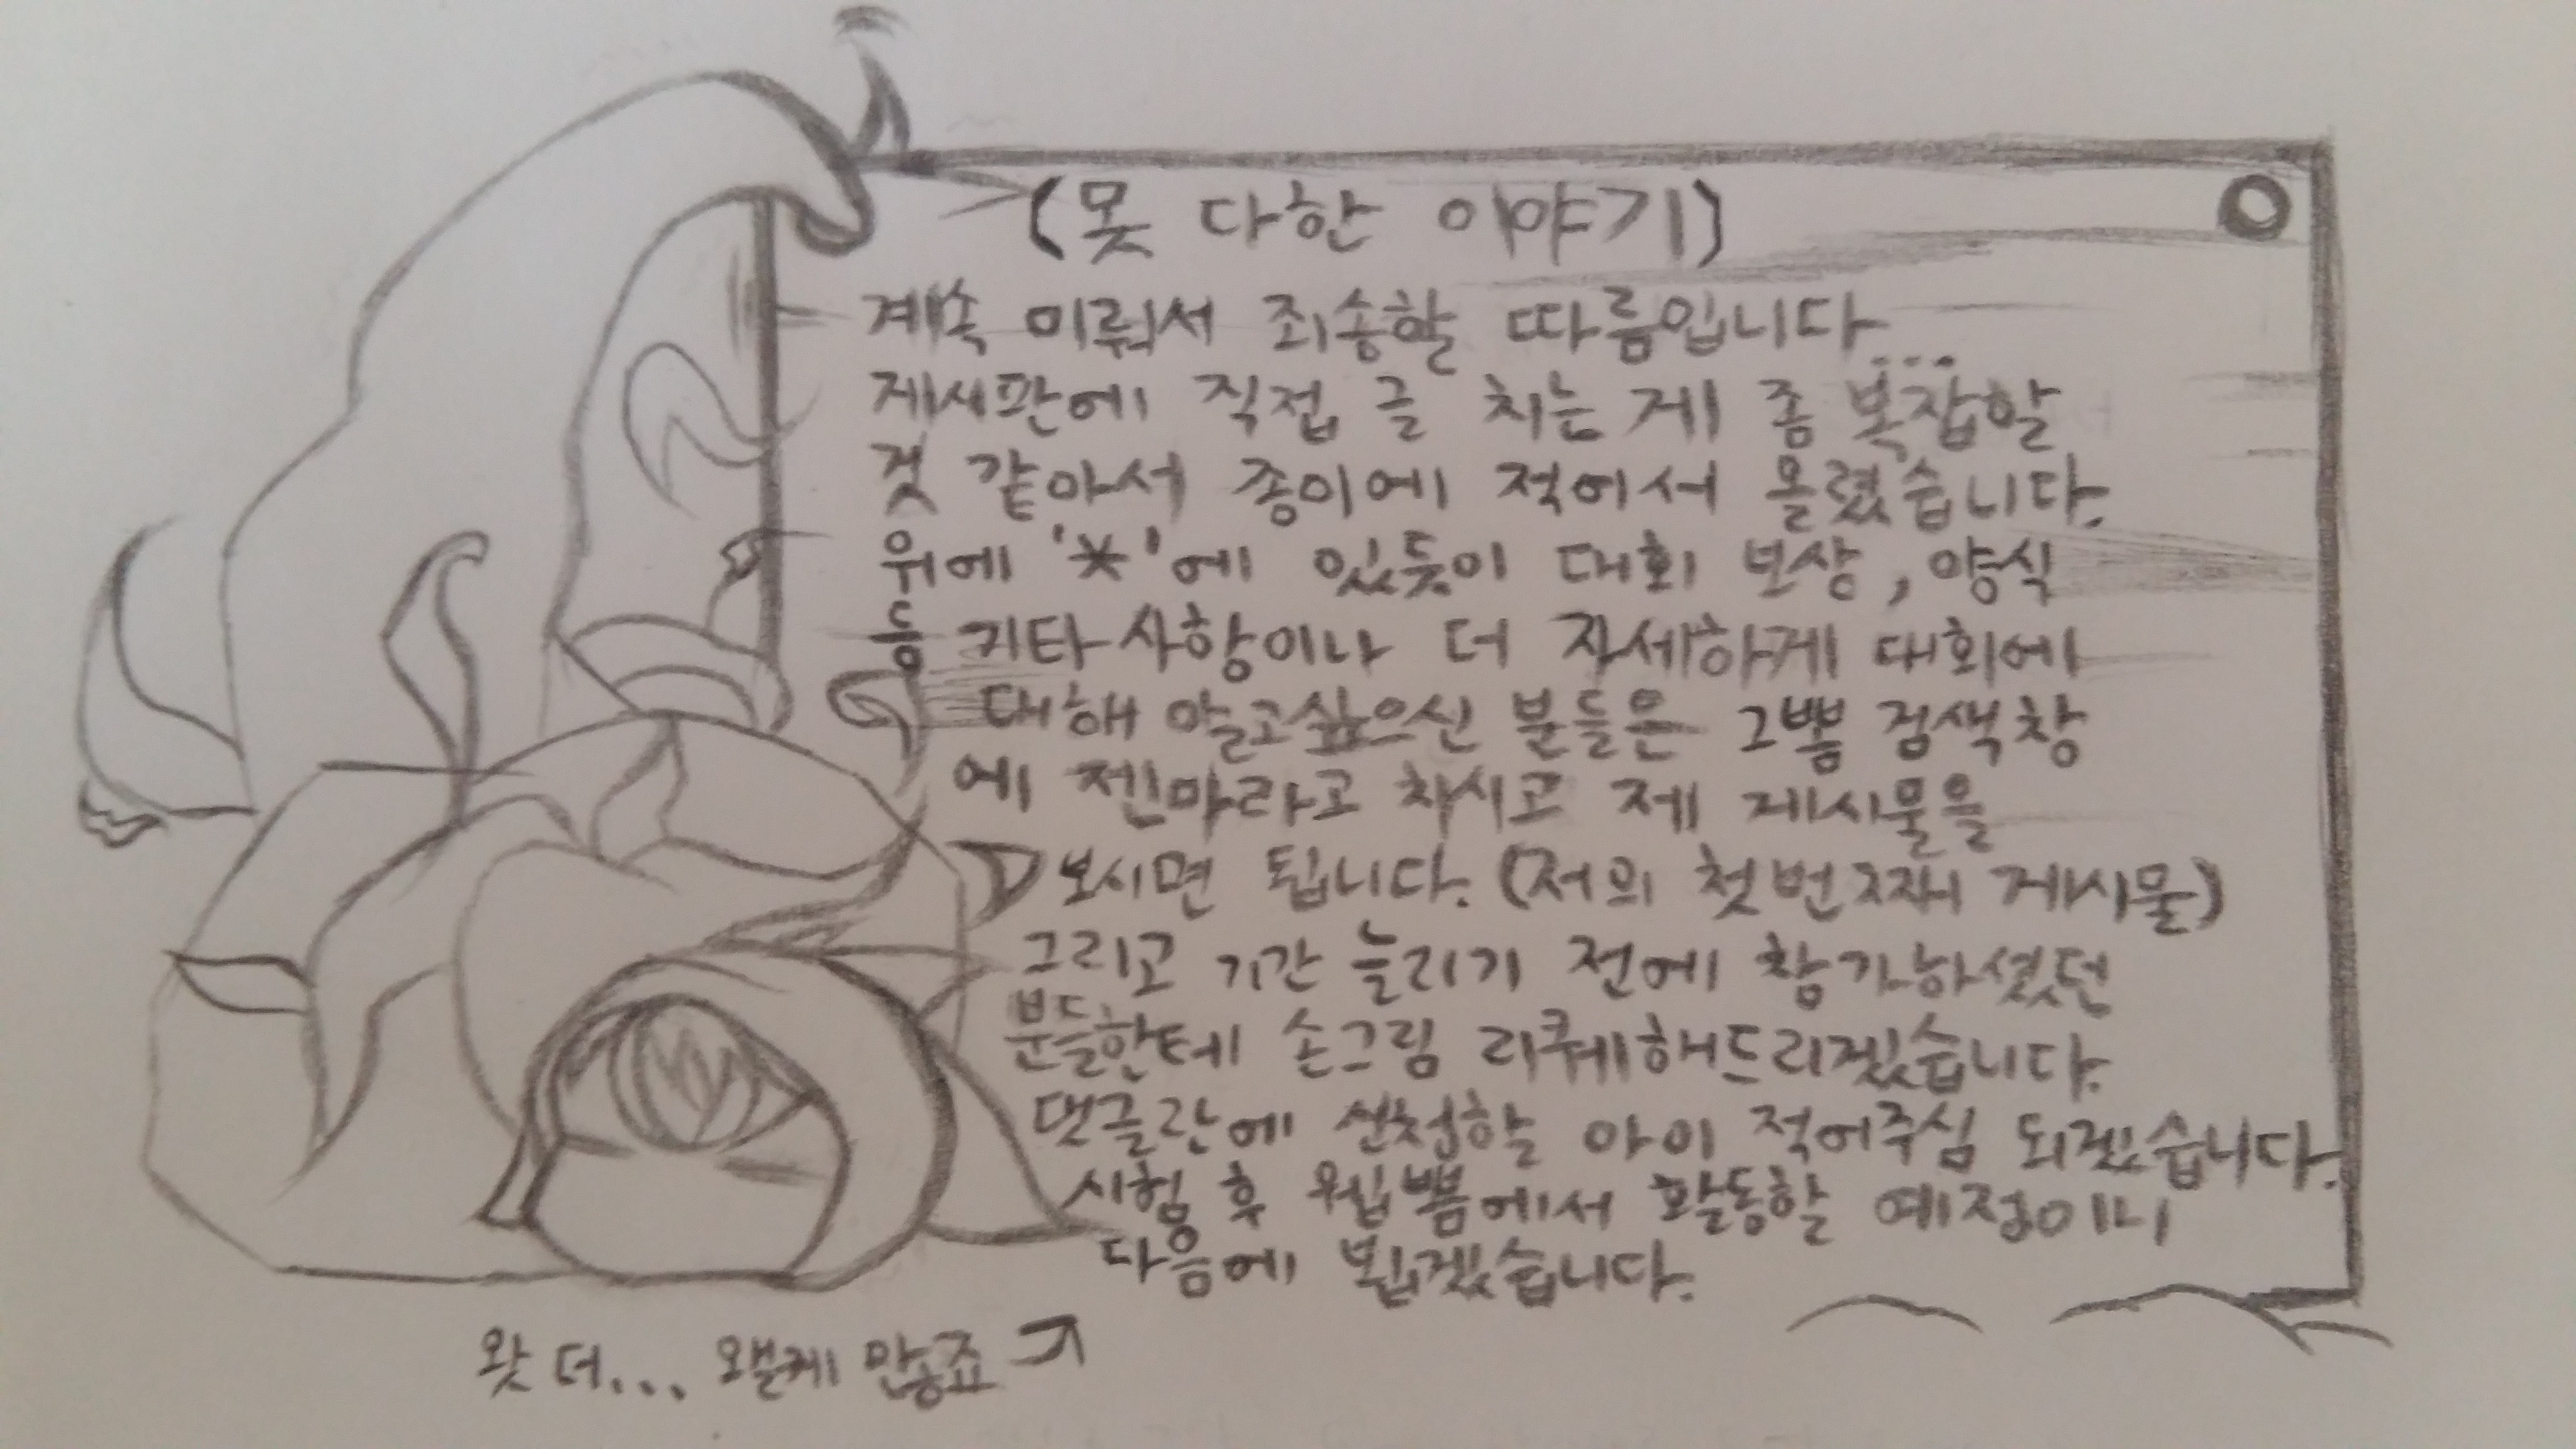 (못 다한 이야기)
계속 미뤄서 죄송할 따름입니다...
게시판에 직접 글 치는 게 좀 복잡할
것 같아서 종이에 적어서 올렸습니다.
위에 '*'에 있듯이 대회 보상, 양식
등 기타사항이나 더 자세하게 대회에
대해 알고싶으신 분들은 그뿜 검색창
에 젠마라고 치시고 제 게시물을
보시면 됩니다. (저의 첫번째 게시물)
그리고 기간 늘리기 전에 참가하셨던
분들한테 손그림 리퀘해드리겠습니다.
댓글란에 신청할 아이 적어주심 되겠습니다.
시험 후 웹뿜에서 활동할 예정이니
다음에 뵙겠습니다.
왓 더... 왤케 많죠